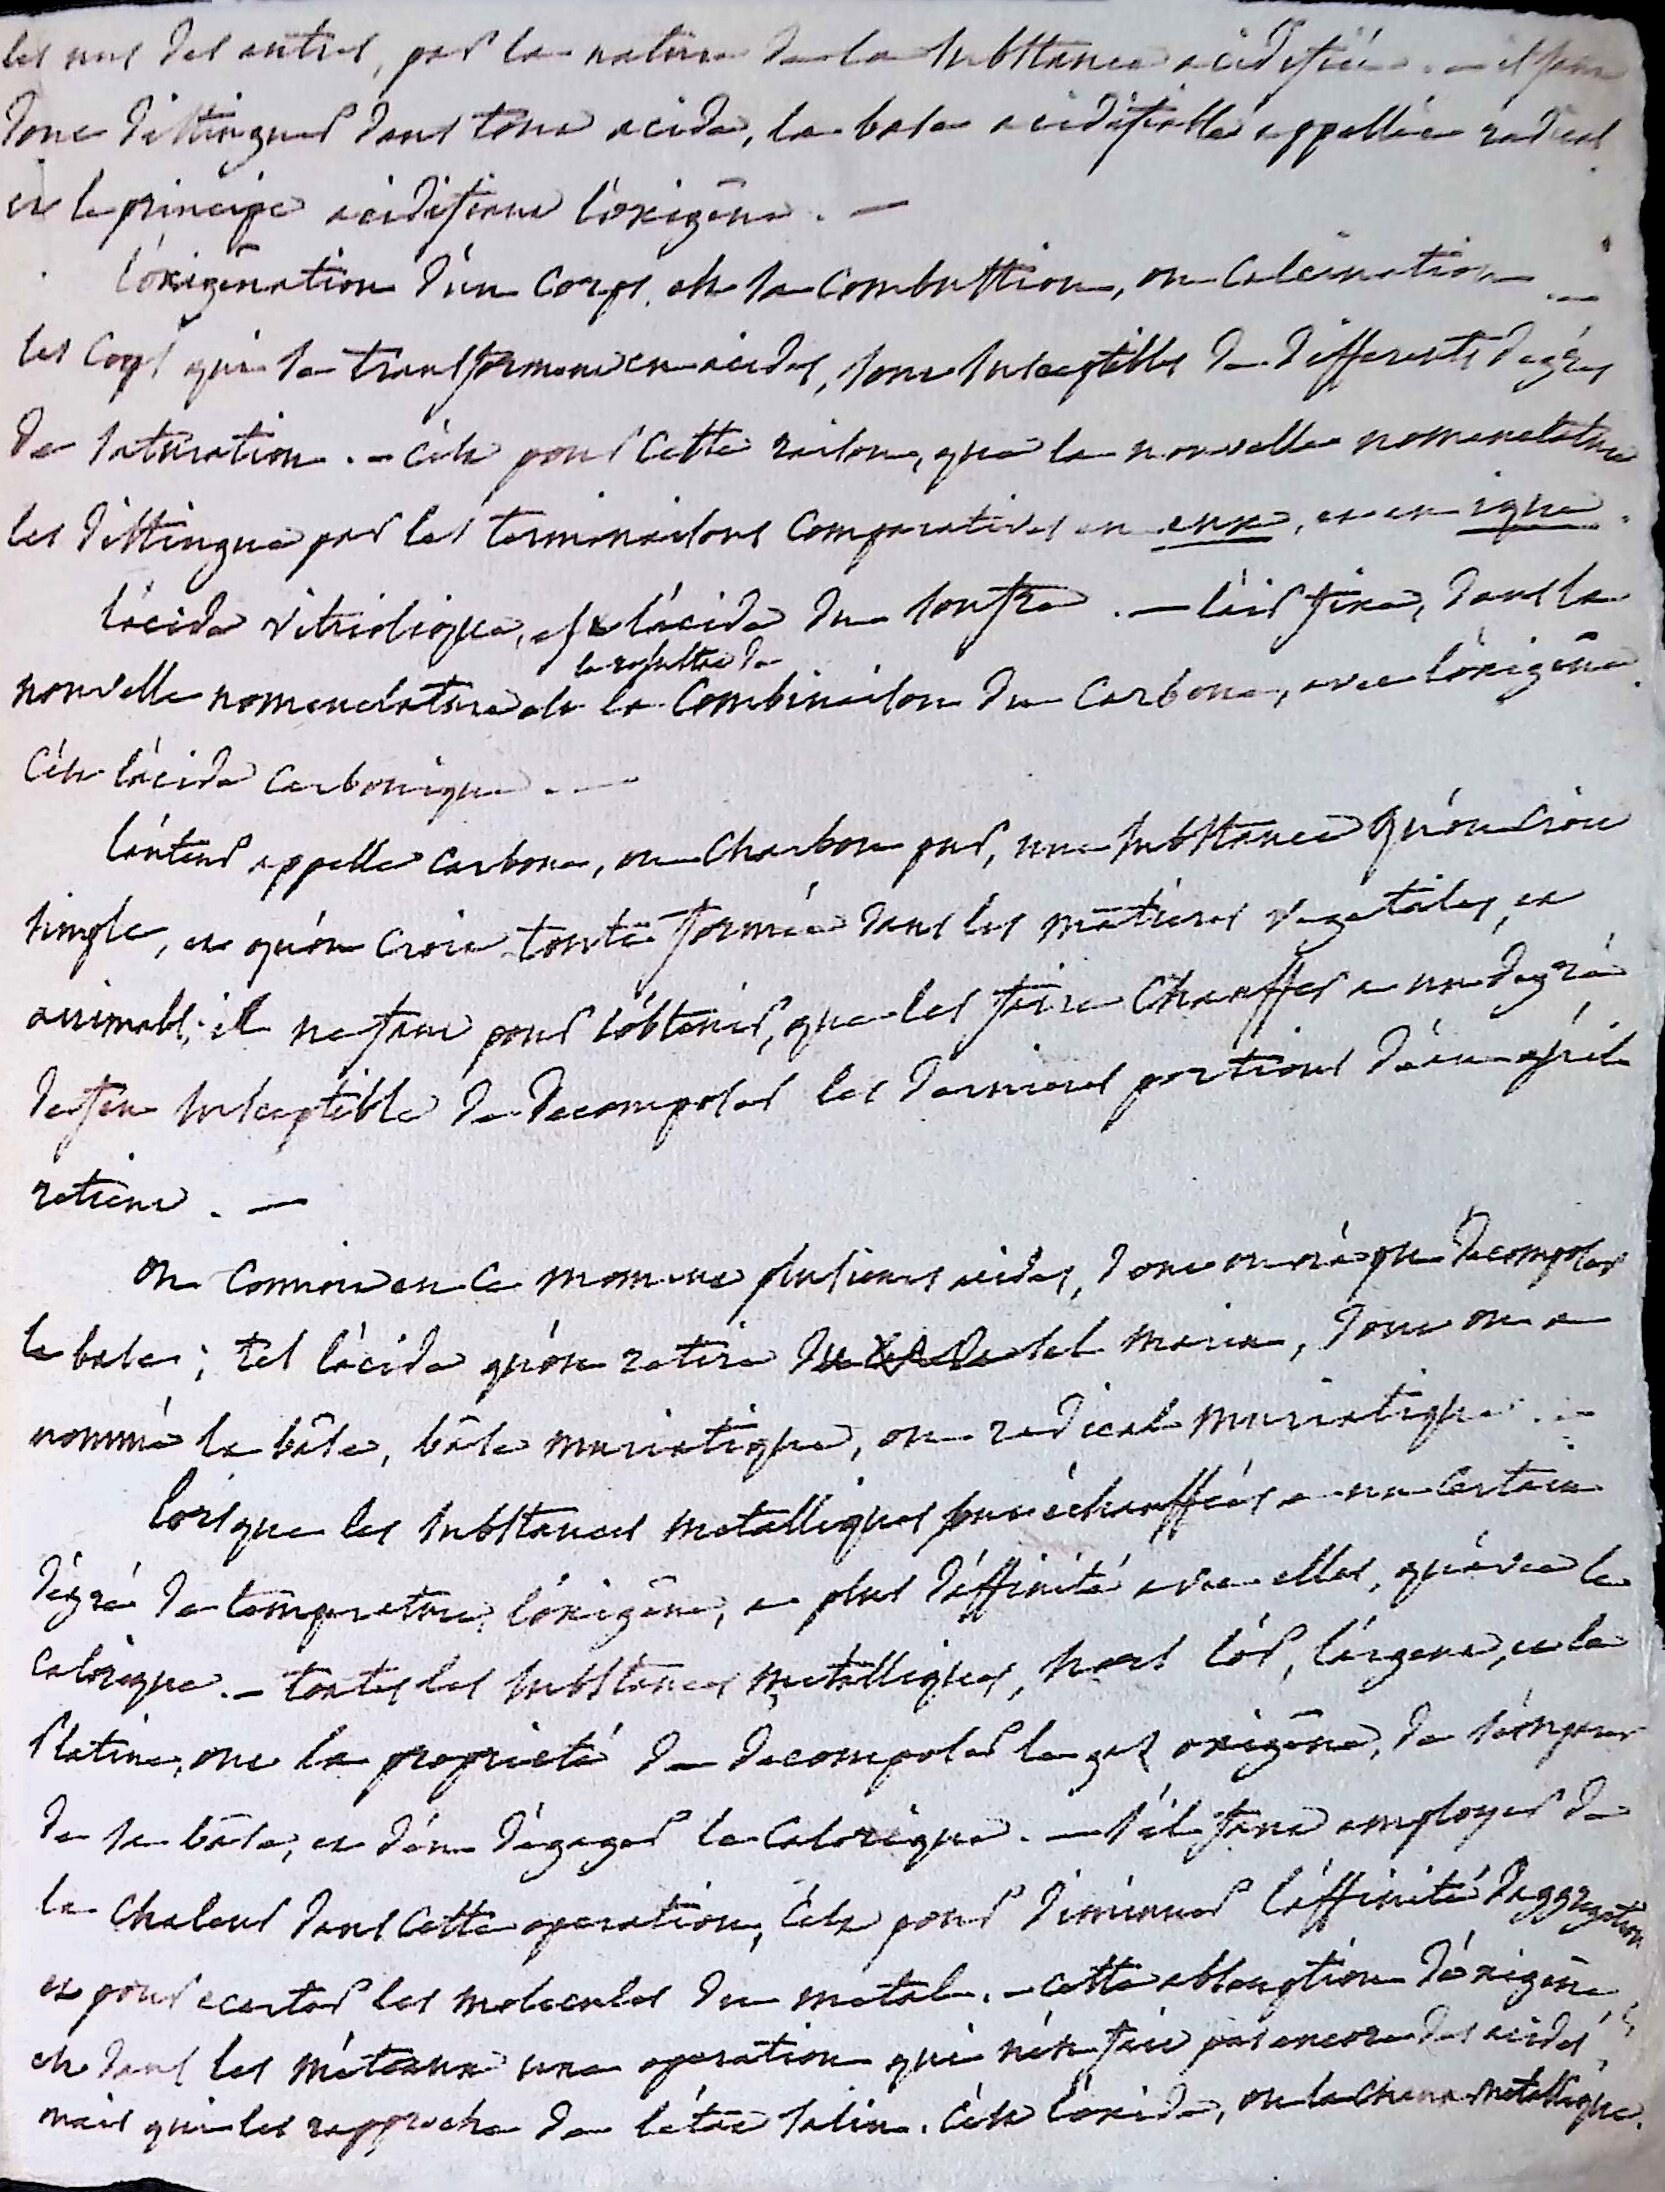 les uns des autres, par la nature de la substance acidifiée. — il faut
donc distinguer dans tout acide, la base acidifiable appellée radical
et le principe acidifiant l'oxigêne. —
l'oxigênation d'un corps, est sa combustion, ou calcination —
les corps qui se transforment en acides, sont susceptibles de differents degrés
de saturation. — c'est pour cette raison, que la nouvelle nomenclature
les distingue par les terminaisons comparatives en eux, et en ique.
l'acide vitriolique, est l'acide du soufre. — l'air fixe, dans la
nouvelle nomenclature est le resultat de la combinaison du carbone, avec l'oxigêne.
c'est l'acide carbonique. —
l'auteur appelle carbone, ou charbon pur, une substance qu'on croit
simple, et qu'on croit toute formée dans les matieres vegetales, et
animales; il ne faut pour l'obtenir, que les faire chauffer a un degré
de feu susceptible de decomposer les dernieres portions d'eau qu'il
retient. —
on connoit en ce moment plusieurs acides, dont on n'a pu decomposer
la base; tel l'acide qu'on retire du sel marin, dont on a
nommé la bâse, bâse muriatique, ou radical muriatique. —
lorsque les substances metalliques sont échauffées a un certain
dégré de temperature, l'oxigêne, a plus d'affinité avec elles, qu'avec le
calorique. — toutes les substances metalliques, hors l'or, l'argent, et la
platine, ont la proprieté de decomposer le gaz oxigêne, de s'emparer
de sa bâse, et d'en dégager le calorique. — s'il faut employer de
la chaleur dans cette operation, c'est pour diminuer l'affinité d'aggregation
et pour ecarter les molecules du metal. — cette absorption d'oxigêne,
est dans les métaux une operation qui n'en fait pas encore des acides,
mais qui les rapproche de l'état salin. c'est l'oxide, ou la chaux metallique.